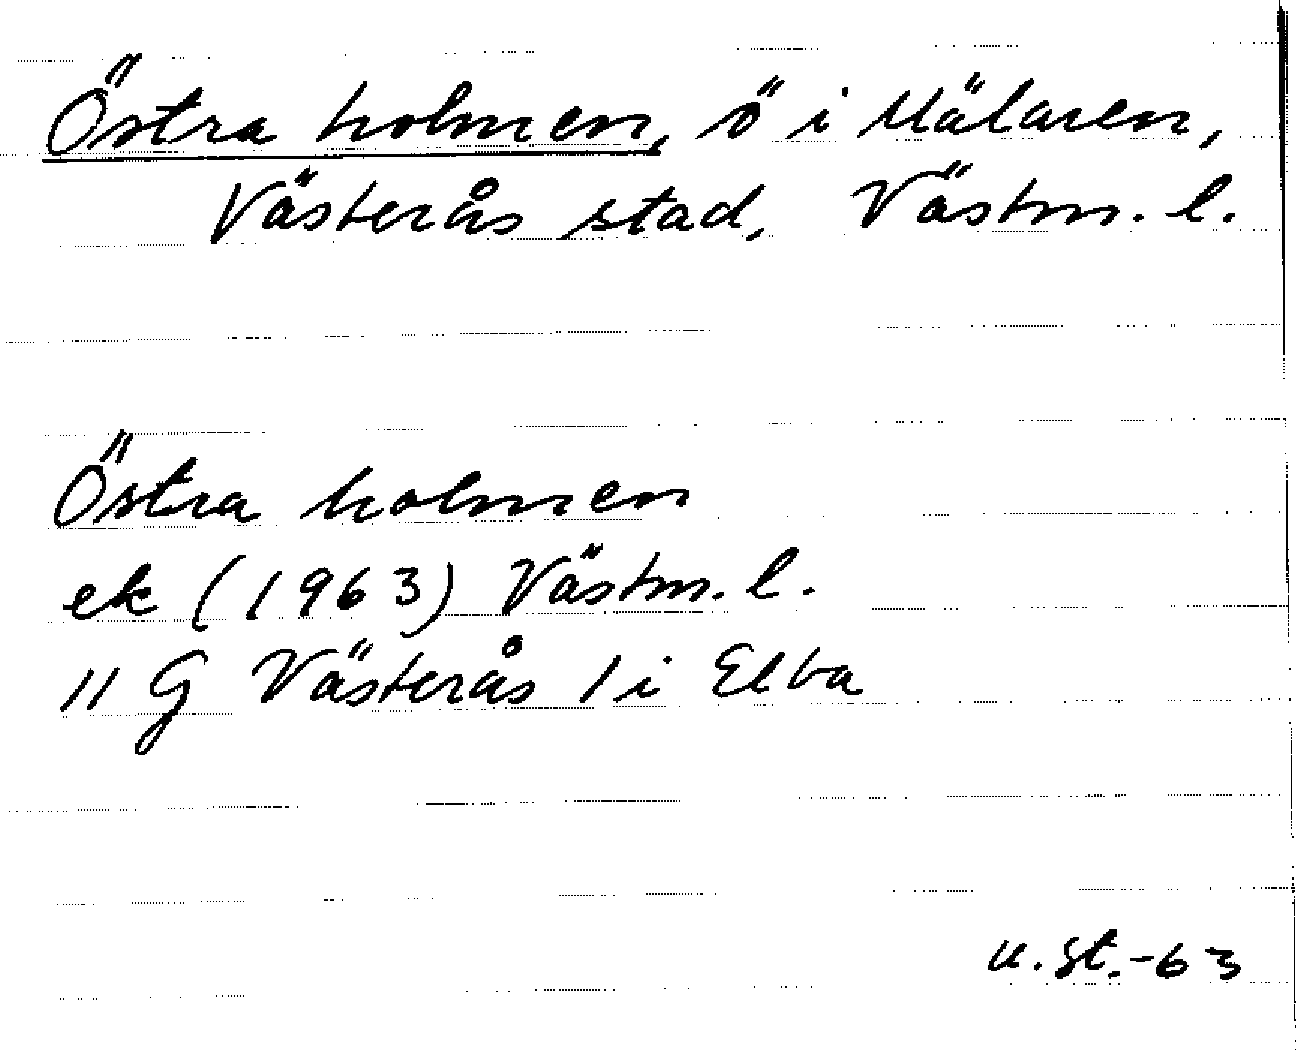 Östra holmen, ö i Mälaren,
Västerås stad, Västm. l.
Östra holmen
ek (1963) Västm. l.
11 G Västerås 1 i Elba
u. st. -63